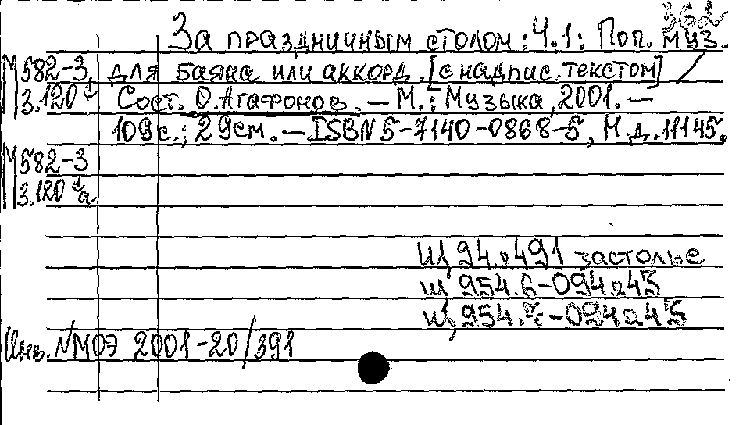 362
За праздничным столом: Ч.1: Поп. муз.
М 582-3 для баяна или аккорд. [с надпис. текстом] /
З.120 Сост. О.Агафонов. — М.: Музыка, 2001. —
109с.; 29см. — ISBN 5-7140-0868-5, Н.д.11145.
М 582-3
З.120 а
Щ 94.я491 застолье
Щ 954.6-094я45
Щ 954.7-094я45
Инв. №МОЭ 2001-20/391